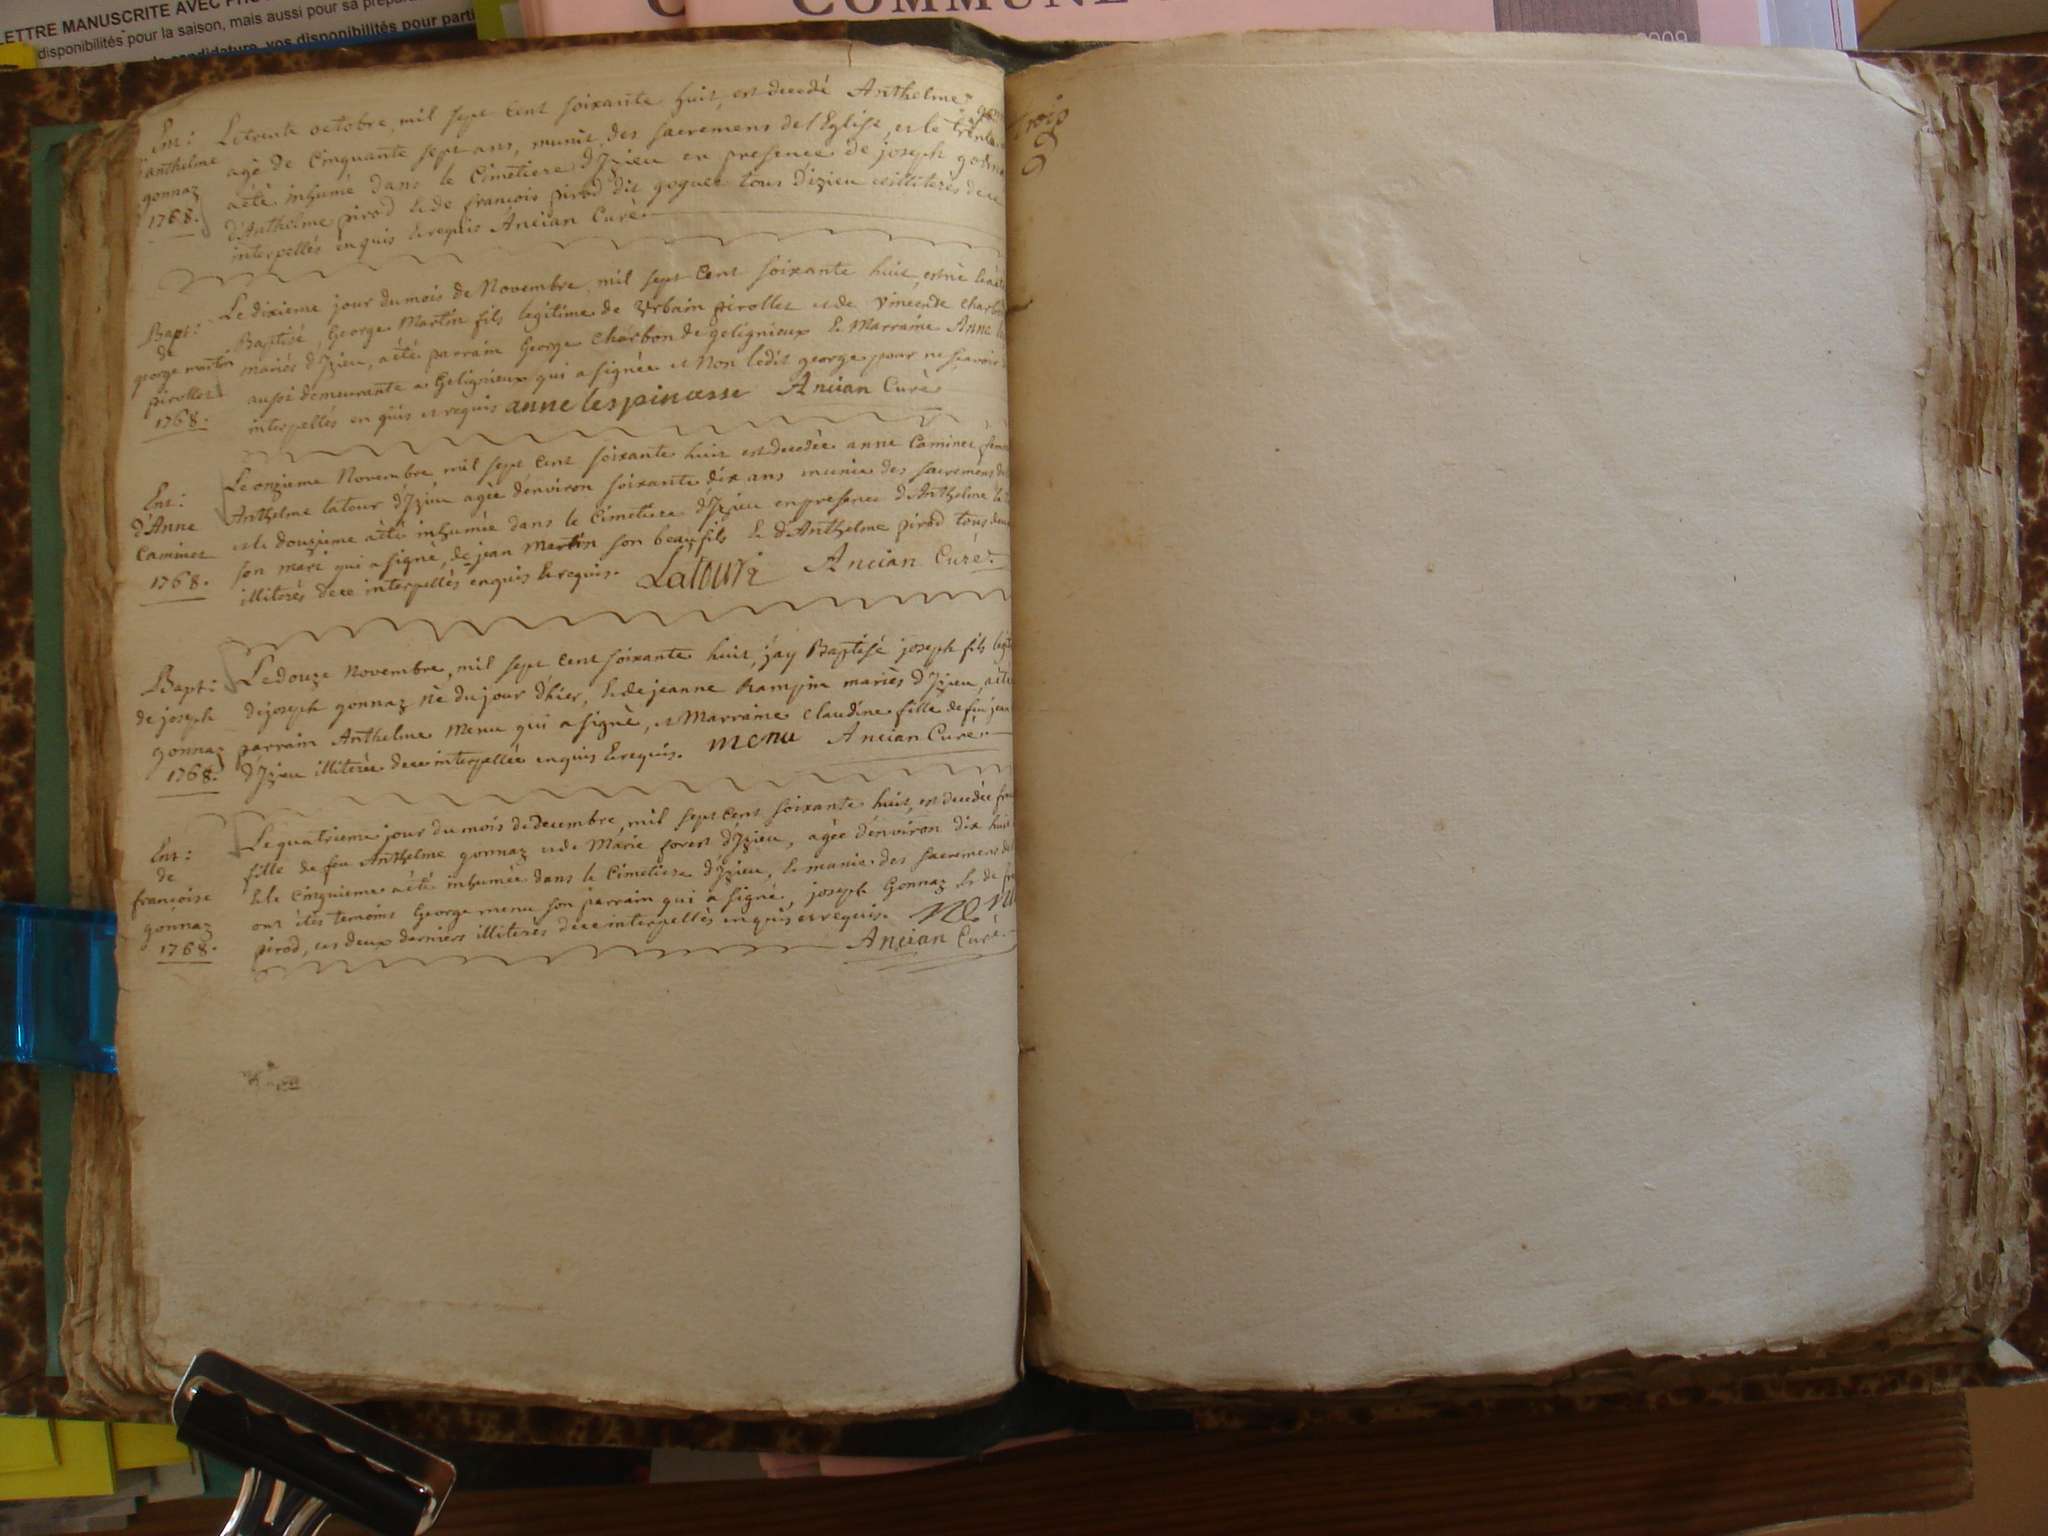 LETTRE MANUSCRITE AVEC
disponibilités pour la saison, mais aussi pour sa
candidature, vos disponibilités pour parti
COMMUNE
2009
trois
Ent:
anthelme
gonnaz
1768.
Le trente octobre, mil sept cent soixante huit, est decedé Anthelme
agé de Cinquante sept ans, munit des sacremens de l'Eglise, et le trente
a été inhumé dans le Cimetiere d'Izieu en presence de joseph
d'Anthelme pirod & de francois pirod dit goguet tous d'izieu & illiterés de ce
interpellés enquis & requis Ancian Curé
Bapt:
de
george martin
pirollet
1768.
Le dixieme jour du mois de Novembre, mil sept cent soixante huit, est né
Baptisé, George Martin fils legitime de Urbain pirollet et de Vincende
mariés d'Izieu, a été parrain George Charbon de gelignieux & Marraine Anne
aussi demeurante a Gelignieux qui a signée et Non ledit george pour ne scavoir
interpellés enquis et requis anne lespinasse Ancian Curé
Ent:
d'Anne
Caminet
1768.
Le onzieme Novembre, mil sept cent soixante huit est decedée anne Caminet
Anthelme latour d'Izieu agée d'environ soixante dix ans munie des sacremens
et le douzieme a été inhumée dans le Cimetiere d'Izieu en presence d'Anthelme
son mari qui a signé, de jean Martin son beaufils & d'Anthelme pirod tous deux
illiterés de ce interpellés enquis & requis. Latour Ancian Curé.
Bapt:
de joseph
gonnaz
1768.
Le douze Novembre, mil sept cent soixante huit, j'ay Baptisé joseph fils
de joseph gonnaz né du jour d'hier, & de jeanne Rampin mariés d'Izieu, a été
parrain Anthelme Menu qui a signé, et Marraine Claudine fille de feu jean
d'Izieu illiterée de ce interpellée enquis & requis. menu Ancian Curé
Ent:
de
francoise
gonnaz
1768.
Le quatrieme jour du mois de Decembre, mil sept cent soixante huit, est decedée
fille de feu Anthelme gonnaz et de Marie forest d'Izieu, agée d'environ dix huit
& le Cinquieme a été inhumée dans le Cimetiere d'Izieu, & munie des sacremens
ont étés temoins George menu son parrain qui a signé, joseph Gonnaz & de
pirod, ces deux derniers illiterés de ce interpellés enquis et requis.
Ancian Curé